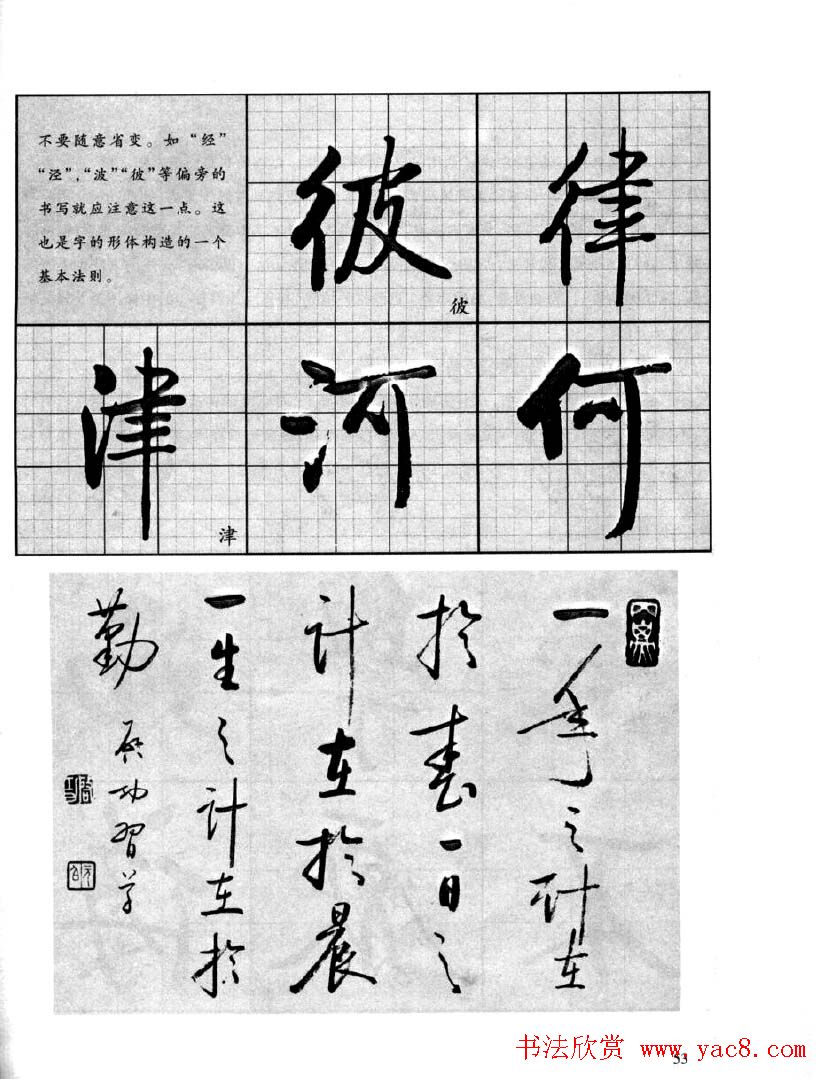 不要随意省变。如“经”
“泾”,“波”“彼”等偏旁的
书写就应注意这一点。这
也是字的形体构造的一个
基本法则。
彼
彼
律
津
津
河
何
一年之计在
於春一日之
計在於晨
一生之計在於
勤
启功习草
书法欣赏 www.yac8.com
53